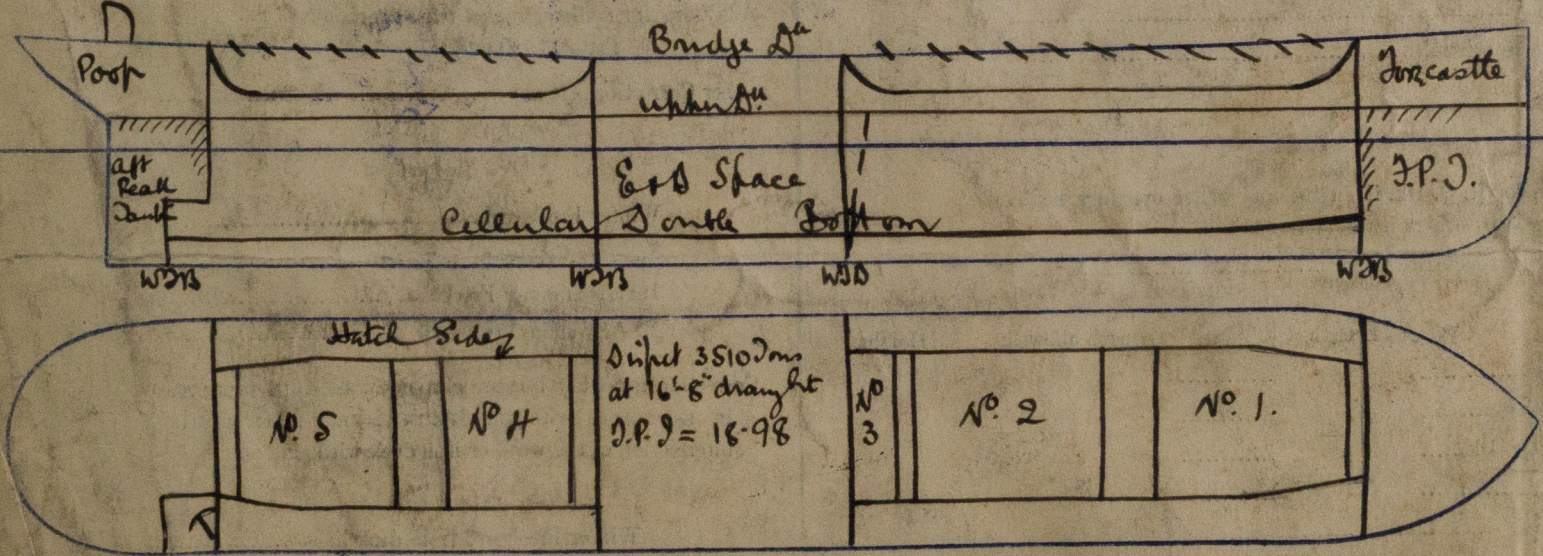 Poop
Bridge Dk
Forecastle
upper Dk
Aft
Peak
Tank
E & B Space
F.P.T.
Cellular Double Bottom
WTB
WTB
WTB
WTB
Hatch Sides
Displt 3510 Tons
at 16'-8" draught
T.P.I = 18.98
No. 5
No 4
No
3
No. 2
No. 1.